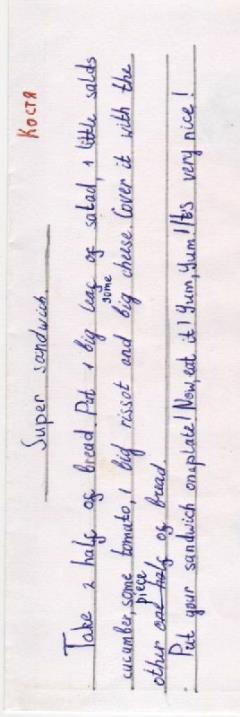 Костя
Super sandwich.
Take 2 half of bread. Put 1 big leaf of salad, 1 little salds
cucumber, some tomato, 1 big rissot and some big cheese. Cover it with the
other one half piece of bread.
Put your sandwich on a plate! Now, eat it! Yum, Yum! It's very nice!